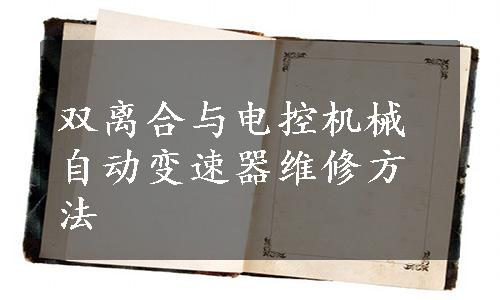 双离合与电控机械
自动变速器维修方
法